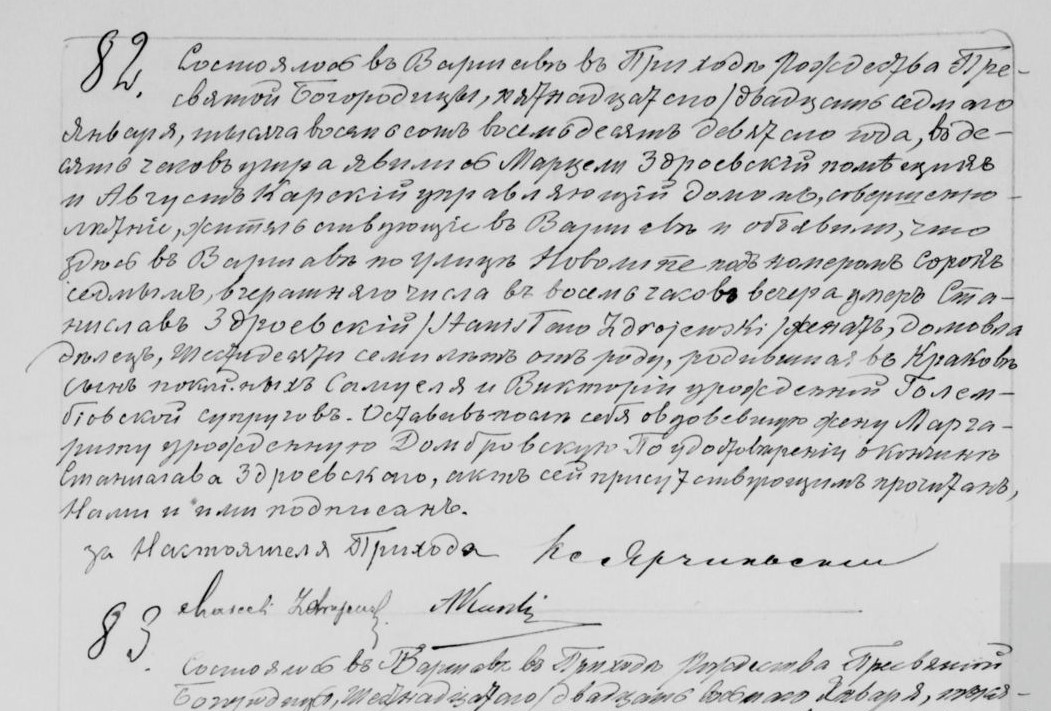 82.
Состоялось въ Варшавѣ въ Приходѣ Рождества Пре-
святой Богородицы, пятнадцатаго/двадцать седьмаго
Января, тысяча восемьсотъ восемьдесятъ девятаго года, въ де-
сять часовъ утра явились Марцели Здроевскій помѣщикъ
и Августъ Карскій управляющій домомъ, совершенно-
лѣтніе, жительствующіе въ Варшавѣ и объявили, что
здѣсь въ Варшавѣ по улицѣ Новолипе подъ номеромъ сорокъ
седьмымъ, вчерашняго числа въ восемь часовъ вечера умеръ Ста-
ниславъ Здроевскій /Stanisław Zdrojewski/ женатъ, домовла
дѣлецъ, шестидесяти семи лѣтъ отъ роду, родившійся въ Краковѣ
сынъ покойныхъ Самуеля и Викторіи урожденной Голем-
біовской супруговъ. Оставивъ послѣ себя овдовевшую жену Марга-
риту урожденную Домбровскую По удостовѣреніи о кончинѣ
Станислава Здроевскаго, актъ сей присутствующимъ прочитанъ,
Нами и ими подписанъ.
за Настоятеля Прихода Кс
Zdrojewski
83.
Состоялось въ Варшавѣ въ Приходѣ Рождества Пресвятой
Богородицы, шестнадцатаго/двадцать восьмаго Января, тыся-